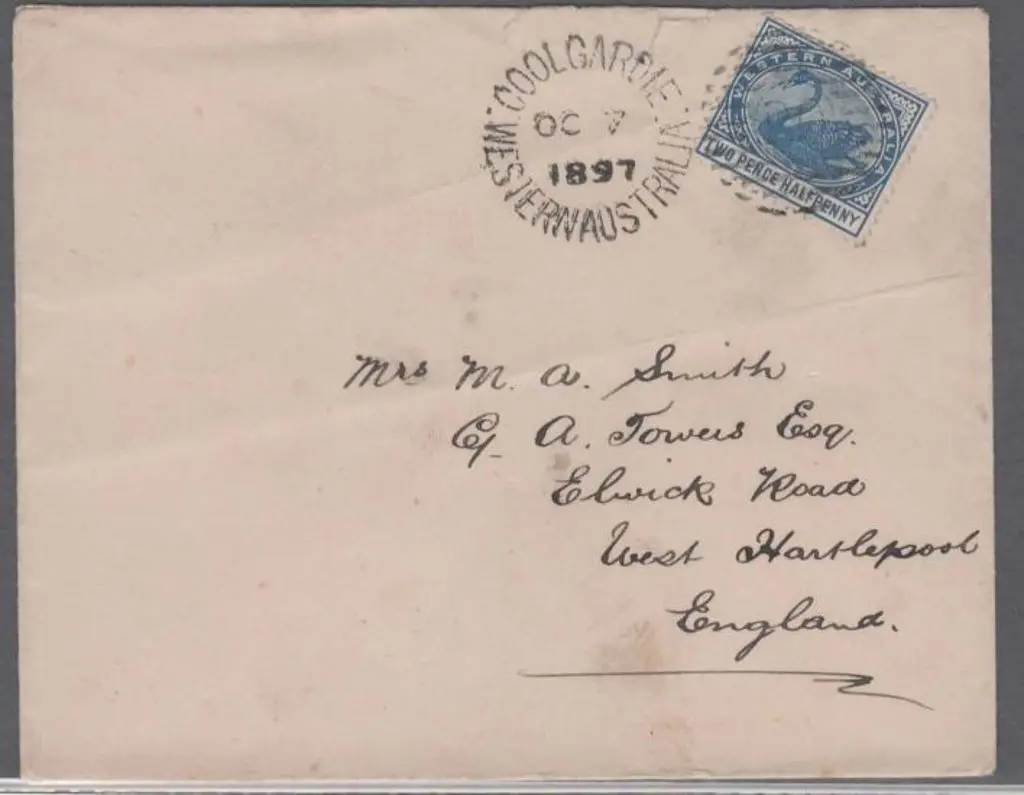 COOLGARDIE.W.
OC 7
1897
WESTERN AUSTRALIA
WESTERN AUSTRALIA
TWO PENCE HALFPENNY
Mrs M. A. Smith
A. Towers Esq.
Elwick Road
West Hartlepool
England.